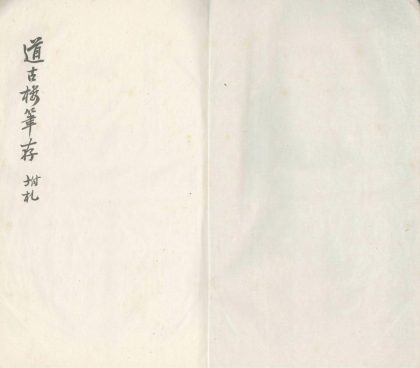 道古樓筆存 附札